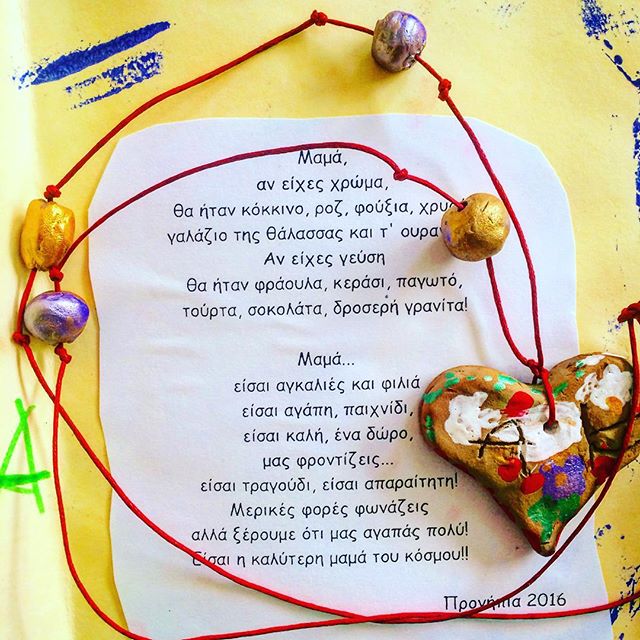 Μαμά,
αν είχες χρώμα,
θα ήταν κόκκινο, ροζ, φούξια,
γαλάζιο της θάλασσας και τ'
Αν είχες γεύση
θα ήταν φράουλα, κεράσι, παγωτό,
τούρτα, σοκολάτα, δροσερή γρανίτα!
Μαμά...
είσαι αγκαλιές και φιλιά
είσαι αγάπη, παιχνίδι,
είσαι καλή, ένα δώρο,
μας φροντίζεις...
είσαι τραγούδι, είσαι απαραίτητη!
Μερικές φορές φωνάζεις
αλλά ξέρουμε ότι μας αγαπάς πολύ!
Είσαι η καλύτερη μαμά του κόσμου!!
Προνήπια 2016